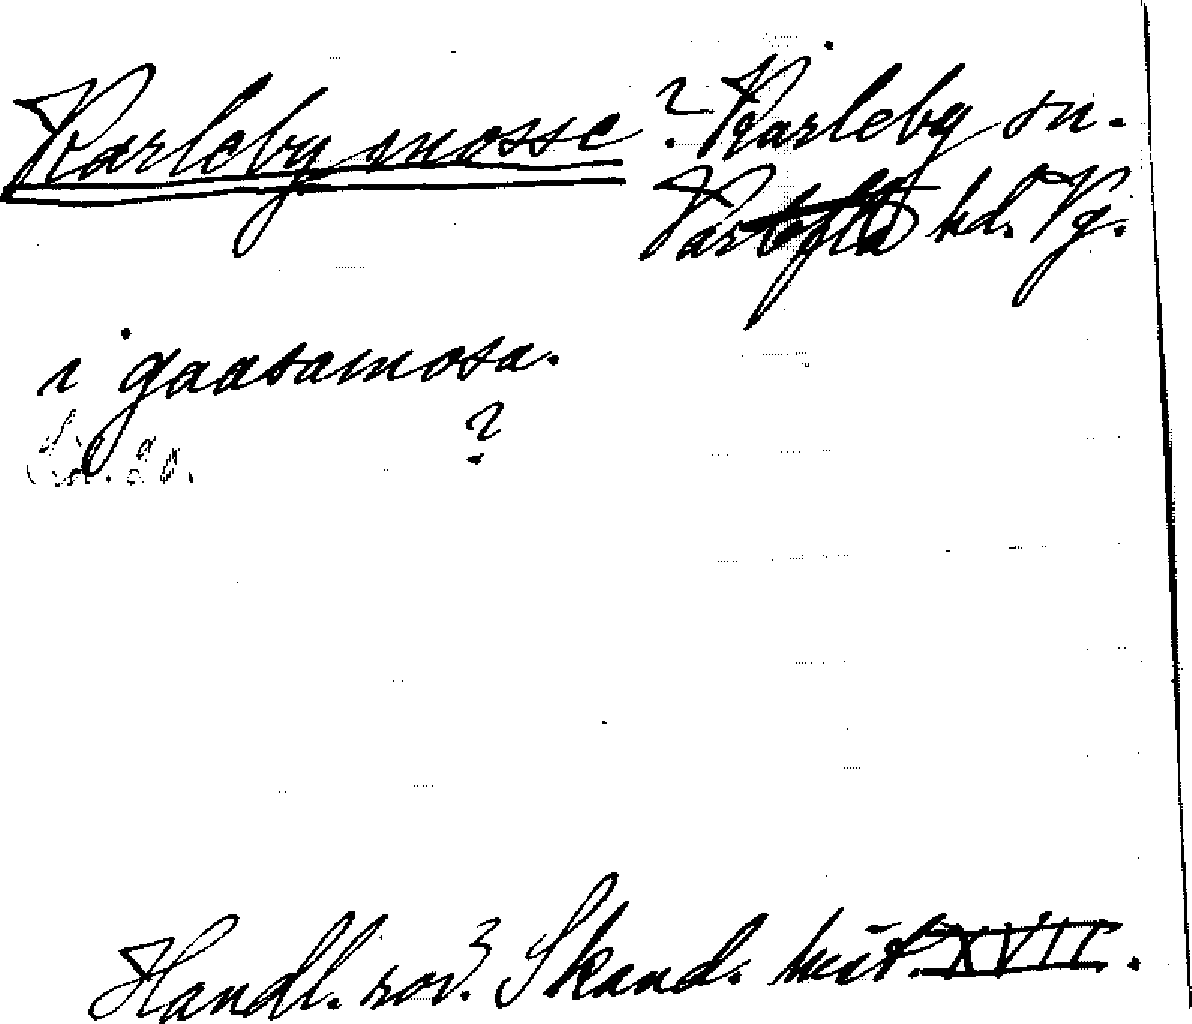 Karleby mosse ? Karleby sn.
Vartofta hd. Vg.
i gaasamosa.
?
Handl. rör. Skand. hist. XVII.